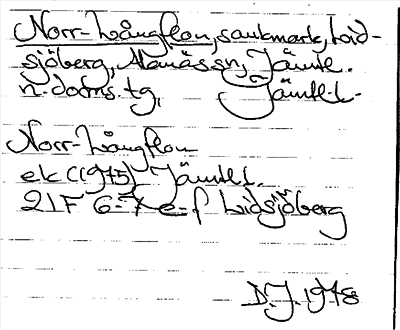 Norr-Långflon, sankmark, Lid-
sjöberg, Alanäs sn, Jämtl.
n. doms. tg, Jämtl. l.
Norr-Långflon
ek (1975) Jämtl.
21F 6-7 e-f Lidsjöberg
D.J. 1978